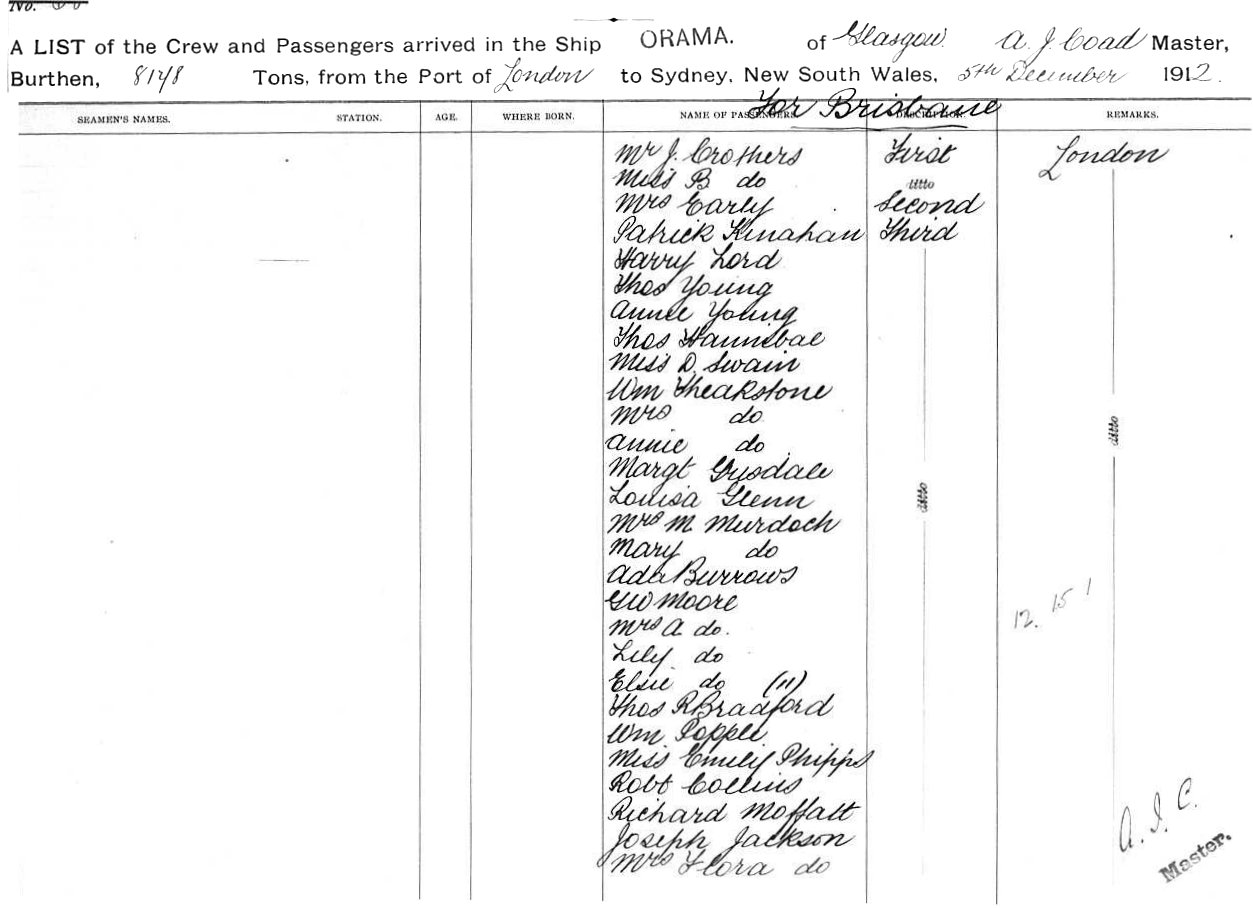 No. 60
A LIST of the Crew and Passengers arrived in the Ship ORAMA. of Glasgow. A. J. Coad Master,
Burthen, 8148 Tons, from the Port of London to Sydney, New South Wales, 5th December 1912.
For Brisbane
SEAMEN'S NAMES. STATION. AGE. WHERE BORN. NAME OF PASSENGERS. DESCRIPTION. REMARKS.
Mr J. Crothers First London
Miss B do ditto
Mrs Early Second
Patrick Kinahan Third
Harry Lord
Thos Young
Annie Young
Thos Hannibal
Miss D. Swain
Wm Theakstone
Mrs do ditto
Annie do
Margt Grysdale
Louisa Glenn ditto
Mrs M Murdoch
Mary do
Ada Burrows
Geo Moore 12. 15 1
Mrs A do.
Lily do
Elsie do (11)
Thos R Bradford
Wm Popple
Miss Emily Phipps
Robt Collins
Richard Moffatt
Joseph Jackson A. J. C.
Mrs Flora do Master.